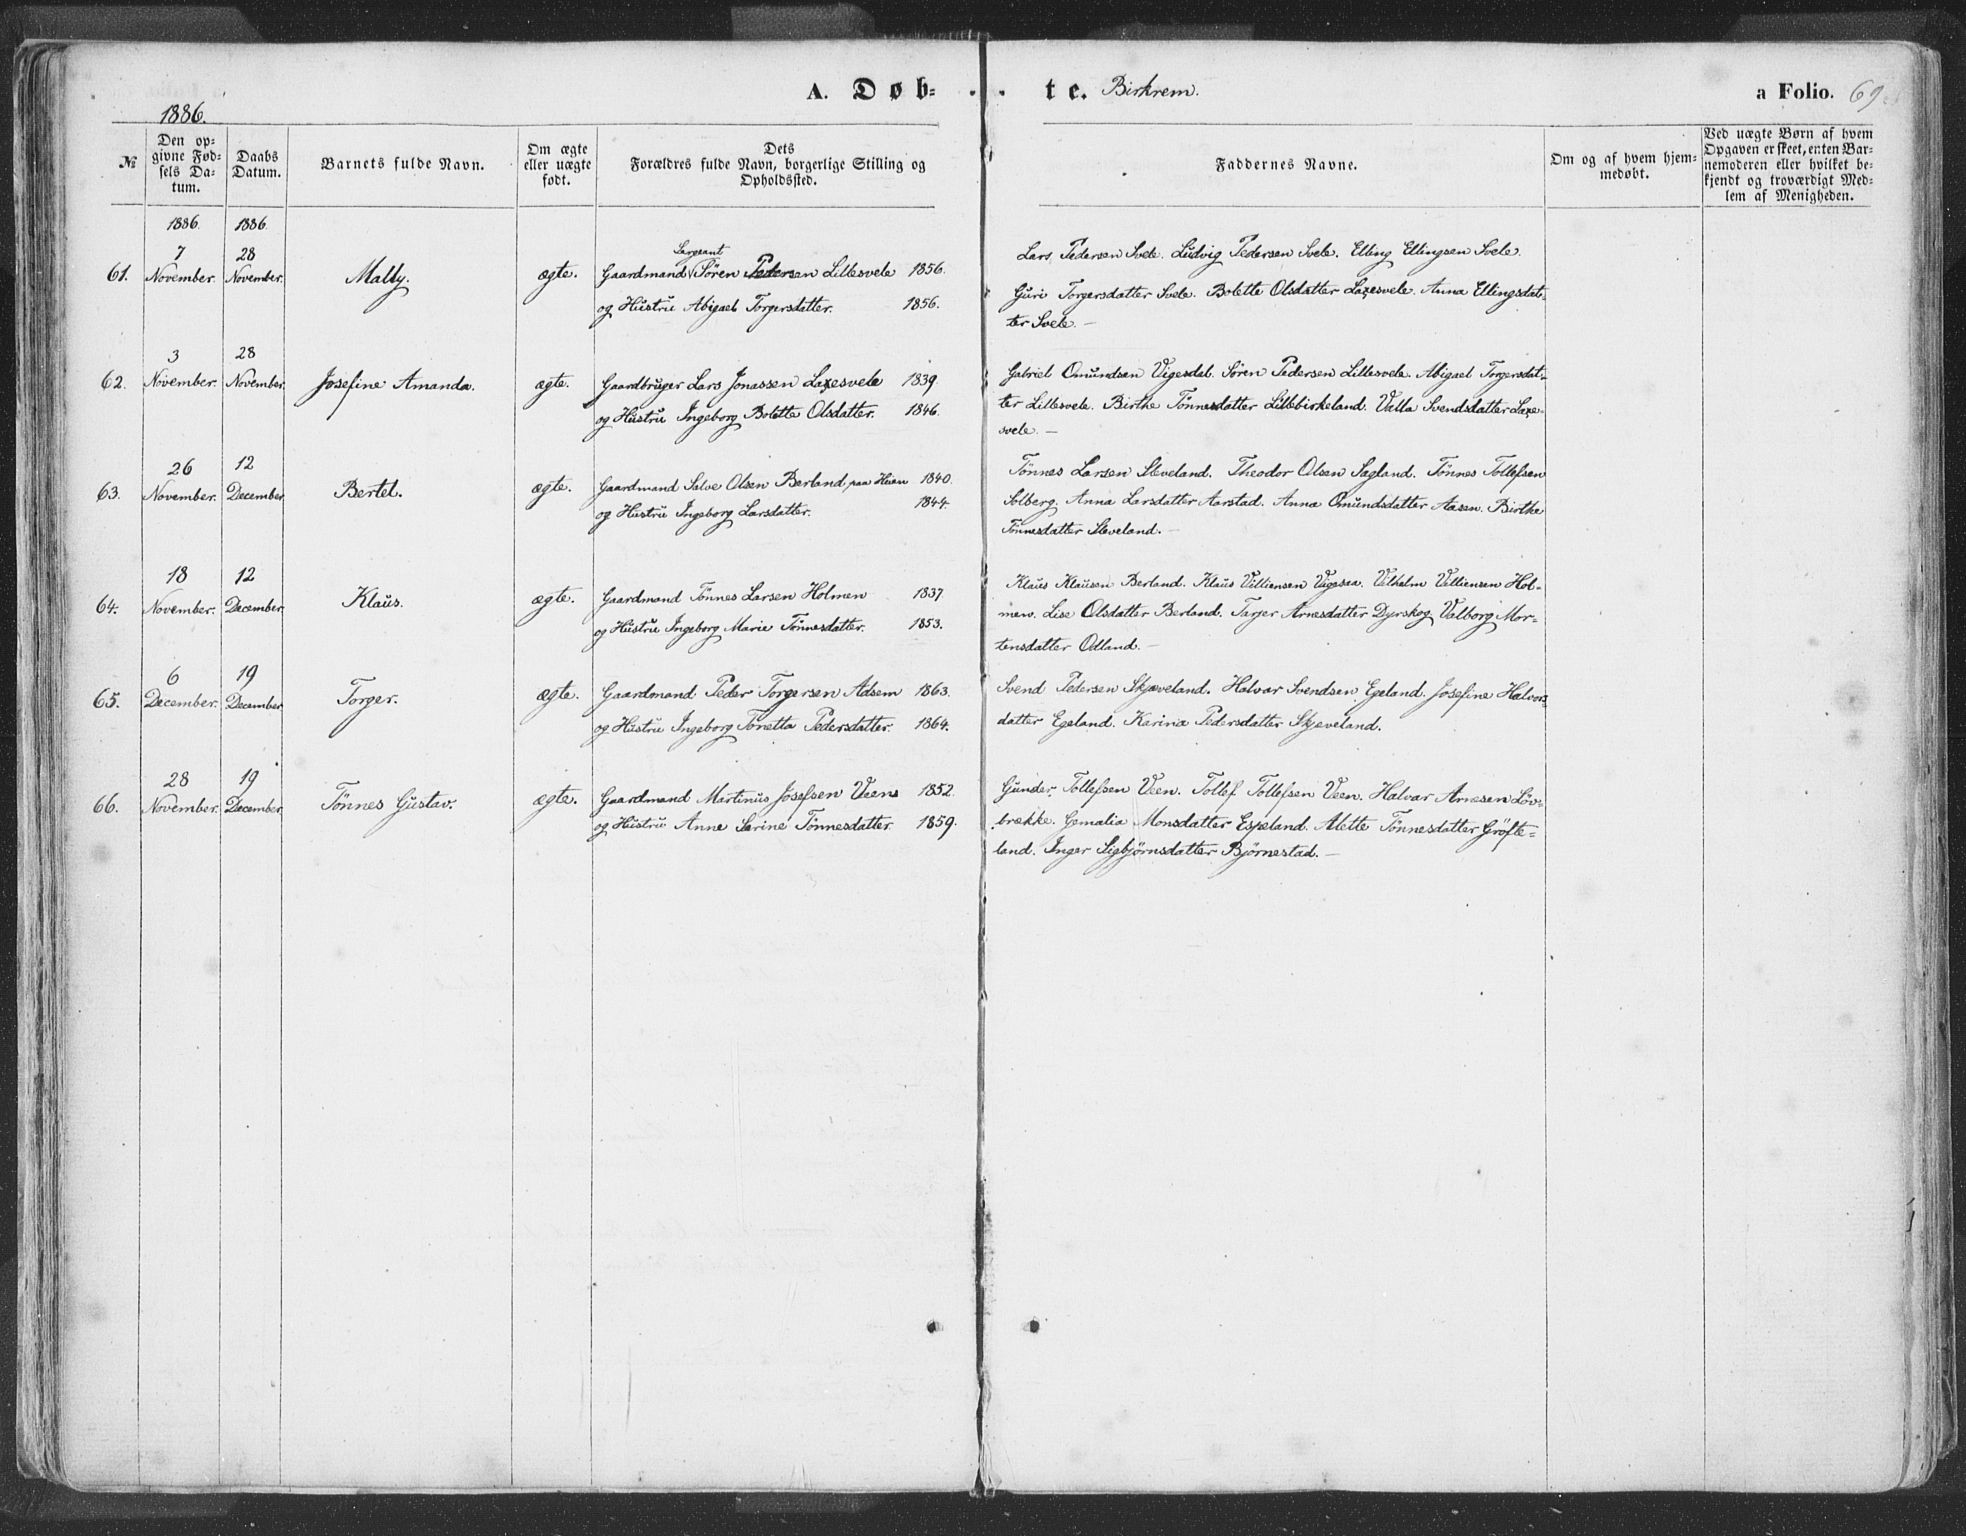 1886.
A. Døb= . . te. Birkrem. a Folio. 69
№
Den op-
givne Fød-
sels Da-
tum.
Daabs
Datum.
Barnets fulde Navn.
Om ægte
eller uægte
født.
Dets
Forældres fulde Navn, borgerlige Stilling og
Opholdssted.
Faddernes Navne.
Om og af hvem hjem-
medøbt.
Ved uægte Børn af hvem
Opgaven er skeet, enten Bar-
nemoderen eller hvilket be-
kjendt og troværdigt Med-
lem af Menigheden.
1886. 1886.
61. 7 November. 28 November. Mally. ægte.
Sergeant
Gaardmand Søren Pedersen Lillesvele 1856.
og Hustru Abigael Torgersdatter. 1856.
Lars Pedersen Svele. Ludvig Pedersen Svele. Elling Ellingsen Svele
Guri Torgersdatter Svele. Bolette Olsdatter Laxesvele. Anna Ellingsdat-
ter Svele. —
62. 3 November. 28 November. Josefine Amanda. ægte.
Gaardbruger Lars Jonassen Laxesvele 1839
og Hustru Ingeborg Bolette Olsdatter. 1846.
Gabriel Omundsen Vigesdal. Søren Pedersen Lillesvele. Abigael Torgersdat-
ter Lillesvele. Birthe Tønnesdatter Lillebirkeland. Valla Svendsdatter Laxe-
svele. —
63. 26 November. 12 December. Bertel. ægte.
Gaardmand Salve Olsen Berland paa 1840.
og Hustru Ingeborg Larsdatter. 1844.
Tønnes Larsen Sleveland. Theodor Olsen Sagland. Tønnes Tollefsen
Solberg. Anna Larsdatter Aarstad. Anna Omundsdatter Aasen. Birthe
Tønnesdatter Sleveland. —
64. 18 November. 12 December. Klaus. ægte.
Gaardmand Tønnes Larsen Holmen 1837
og Hustru Ingeborg Marie Tønnesdatter. 1853.
Klaus Klausen Berland. Klaus Villiensen Vigesaa. Vilhelm Villiensen Hol-
men. Lise Olsdatter Berland. Tarjer Arnesdatter Dyrskog. Valborg Mor-
tensdatter Odland. —
65. 6 December. 19 December. Torger. ægte.
Gaardmand Peder Torgersen Adsem 1863.
og Hustru Ingeborg Tonetta Pedersdatter. 1864.
Svend Pedersen Skjæveland. Halvar Svendsen Egeland. Josefine Halvors
datter Egeland. Karina Pedersdatter Skjæveland.
66. 28 November. 19 December. Tønnes Gustav. ægte.
Gaardmand Martinus Josefsen Veen 1852.
og Hustru Anne Serine Tønnesdatter 1859.
Gunder. Tollefsen Veen. Tollef Tollefsen Veen. Halvar Arnesen Løv-
brække. Gemalia Monsdatter Espeland. Alette Tønnesdatter Grøfte-
land. Inger Sigbjørnsdatter Bjørnestad. —